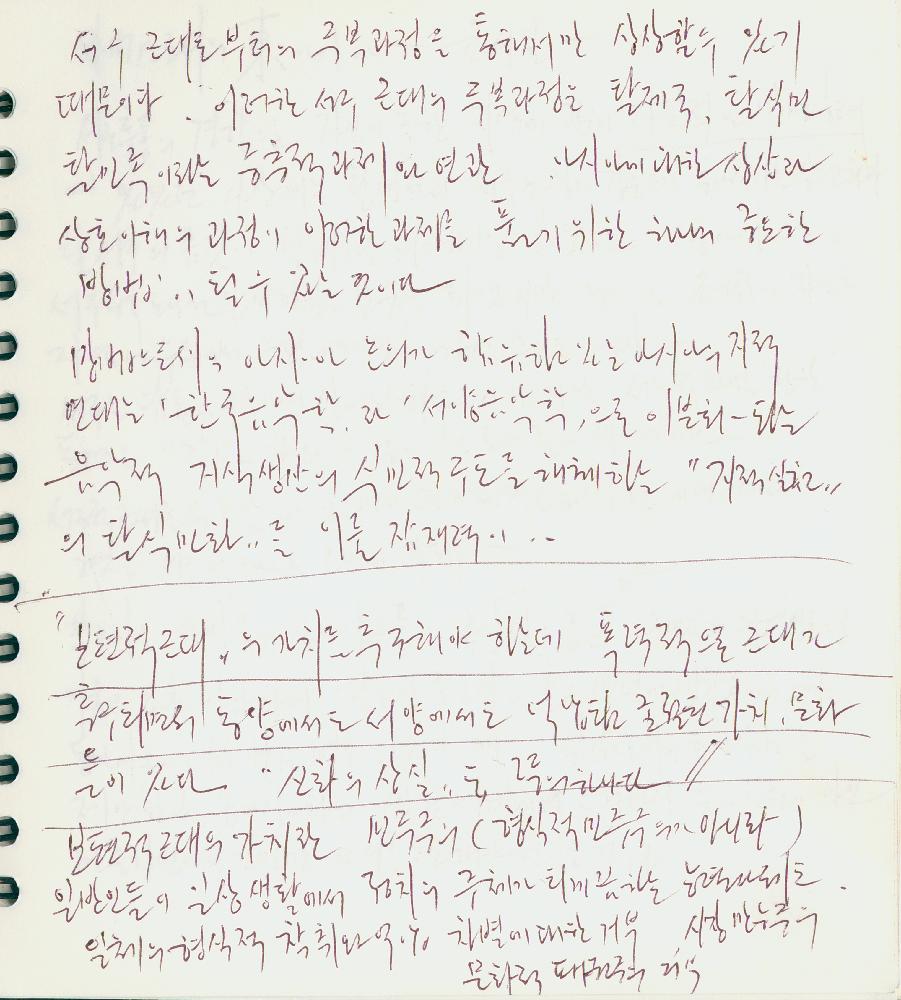 서구 근대로부터의 극복과정을 통해서만 상상할 수 있기
때문이다. 이러한 서구 근대의 극복과정은 탈제국, 탈식민
탈민족이라는 중층적 과제와 연관 아시아에 대한 상상과
상호이해의 과정이 이러한 과제를 풀기 위한 하나의 중요한
방법이 될 수 있는 것이다
아시아 논의가 함유하고 있는 아시아의 지적
연대는 '한국음악학'과 '서양음악학'으로 이분화 되는
음악적 지식생산의 식민적 구도를 해체하는 "지적 실천"
의 탈식민화"를 이룰 잠재력이 ..
"보편적 근대"의 가치를 추구해야 하는데 폭력적으로 근대가
추구되면서 동양에서도 서양에서도 억압된 굴절된 가치, 문화
들이 있다. "신화의 상실" 등
보편적 근대의 가치란 민주주의 (형식적 민주주의가 아니라)
일반인들이 일상생활에서 정치의 주체가 되게끔 하는
일체의 형식적 착취와 억압 차별에 대한 거부 시장만능주의
문화적 패권주의 거부